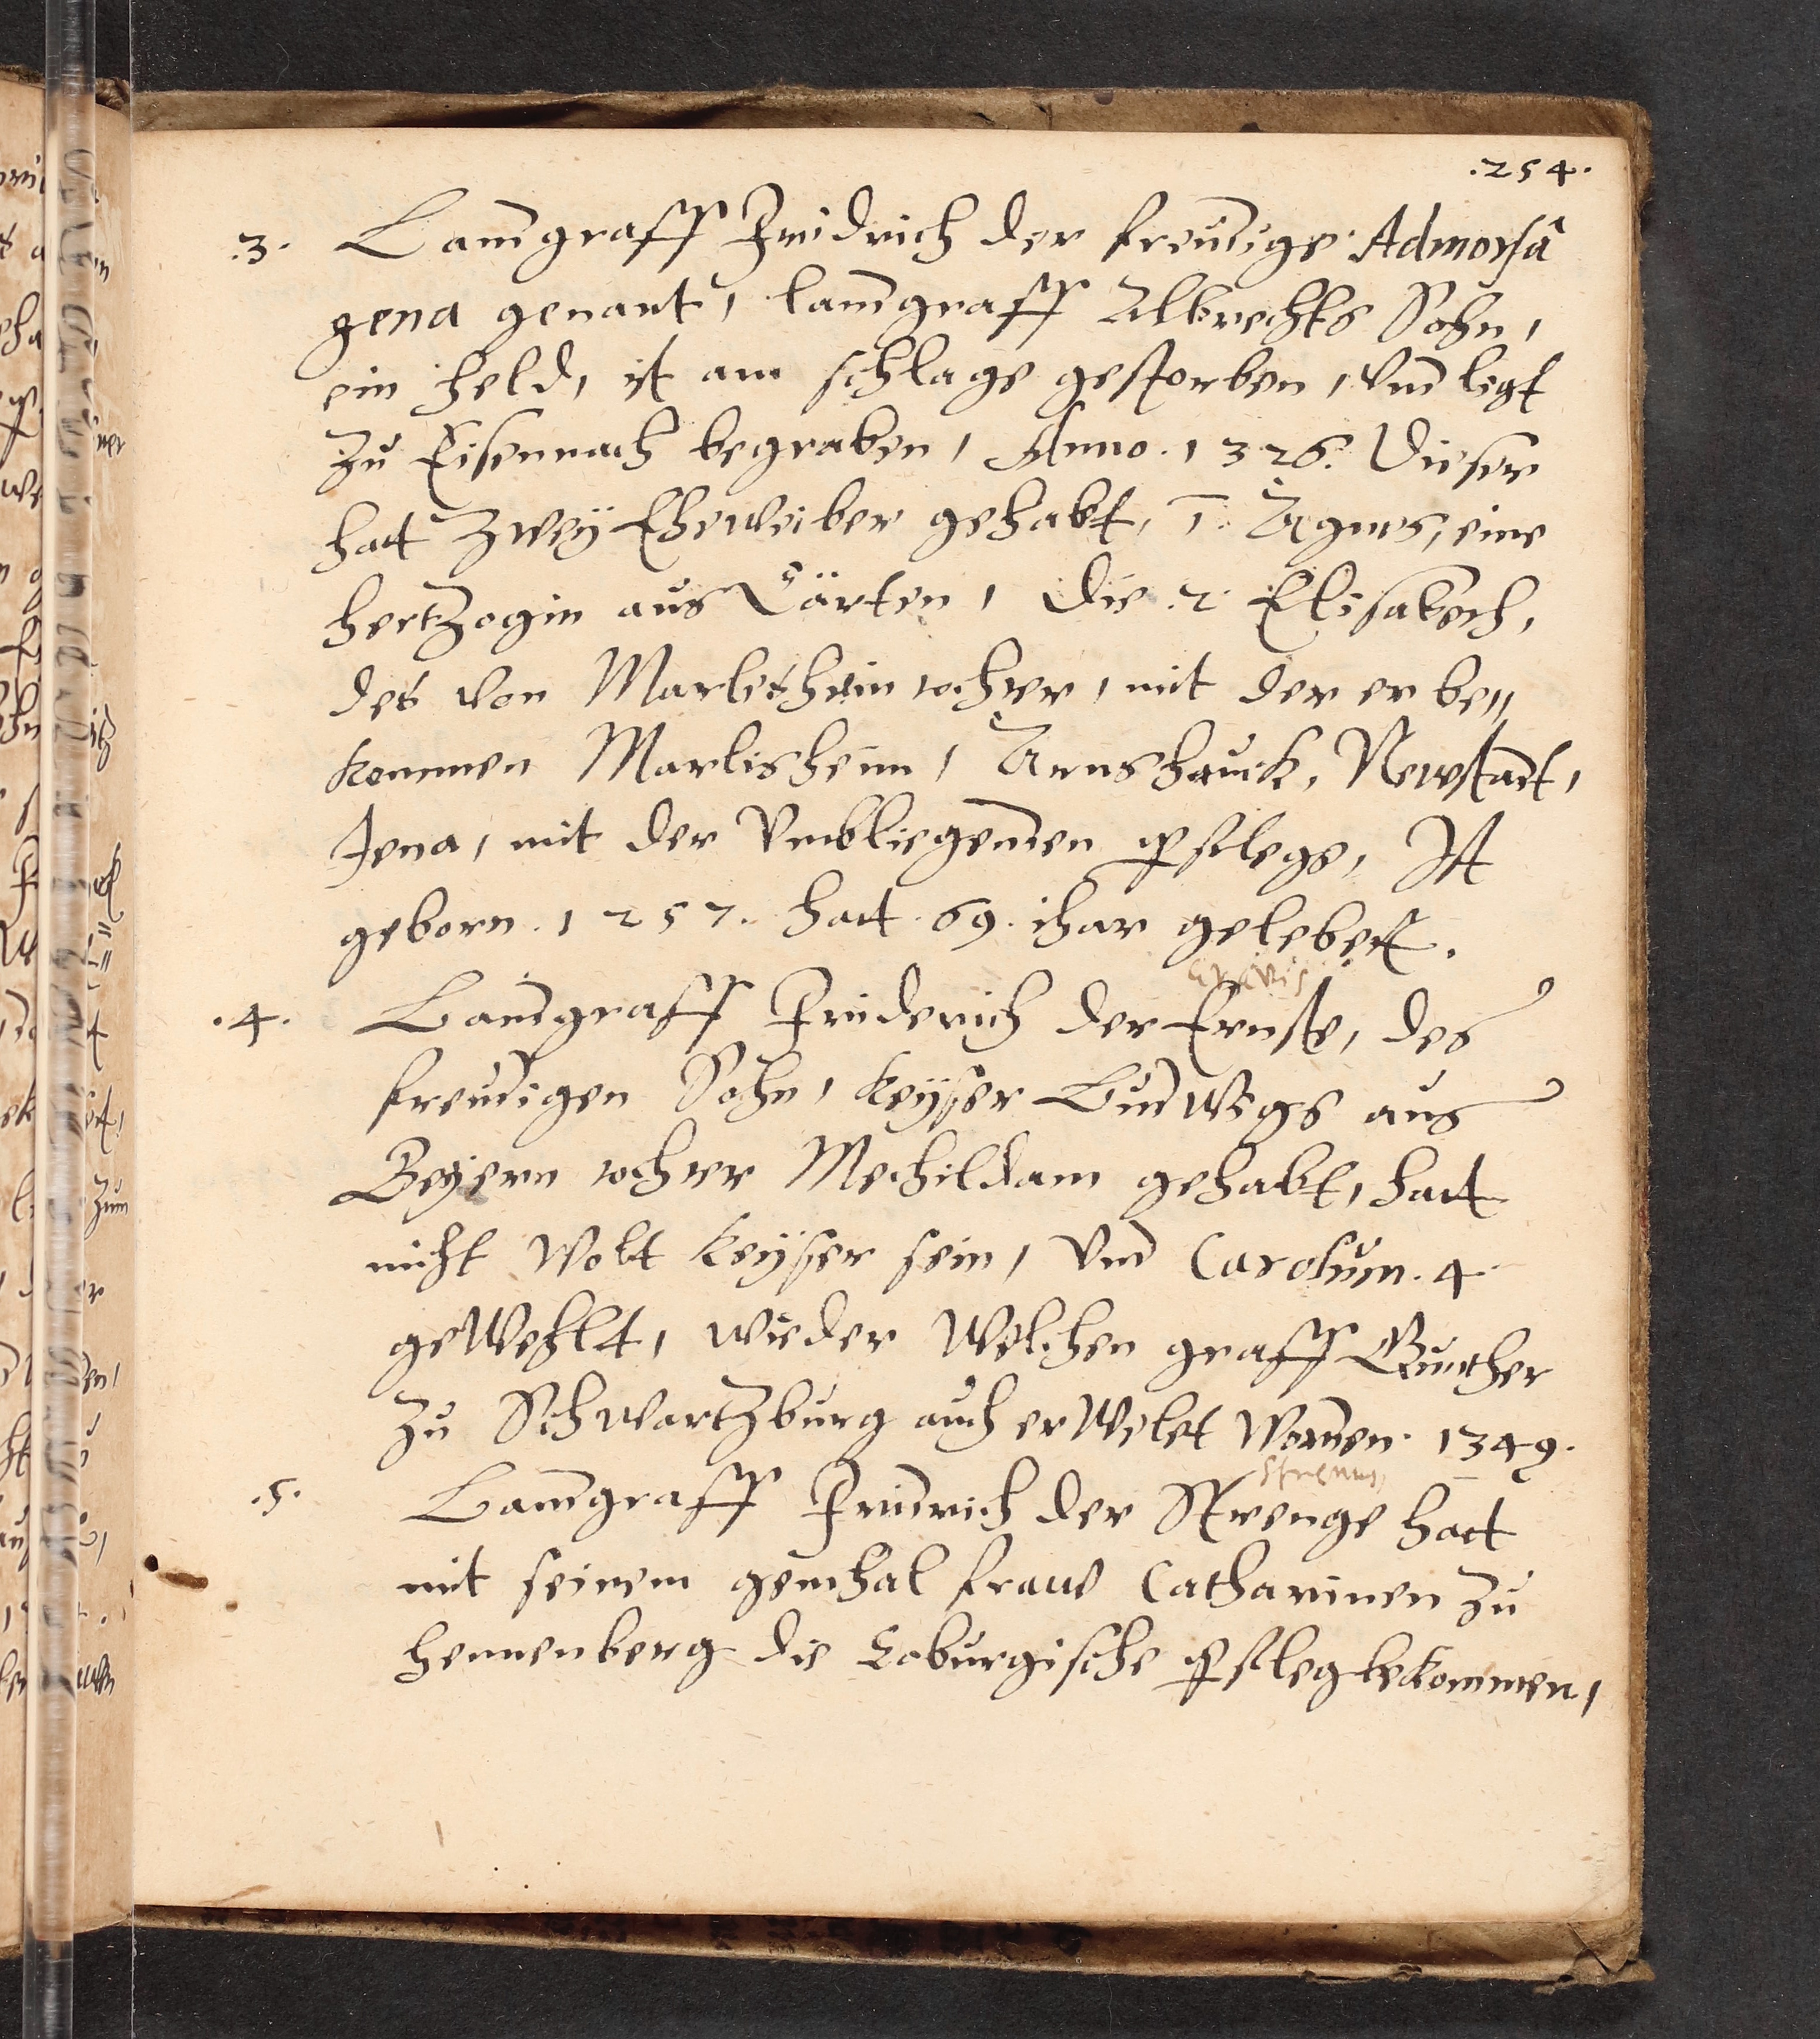 .254.
.3. Landgraff Fridrich der freudige Admorsâ
gena genant, landgraff Albrechts Sohn,
ein held, ist am schlage gestorben, vnd ligt
zu Eisennach begraben, Anno. 1326. Dieser
hatt zwey Eheweiber gehabt, 1. Agnes, eine
hertzogin aus Cärten, die .2. Elisabeth,
des von Marlishein tochter, mit der er be„
kommen Marlisheim, Arnshauck, Newstadt,
Jena, mit der vmbliegenden pflege, Ist
geborn. 1257. hatt. 69. ihar gelebett.
gravis
.4. Landgraff Friderich der Ernste, des
freudigen Sohn, Keyser Ludwigs aus
Beyern tochter Mechildam gehabt, hatt
nicht wolt Keyser sein, vnd Carolum. 4.
gewehlt, wieder welchen graff Gunther
zu Schwartzburg auch erwelet worden. 1349.
strenuus
.5. Landgraff Fridrich der Strenge hatt
mit seinem gemhal fraw Catharinen zu
hennenberg die Coburgische pfleg bekommen,